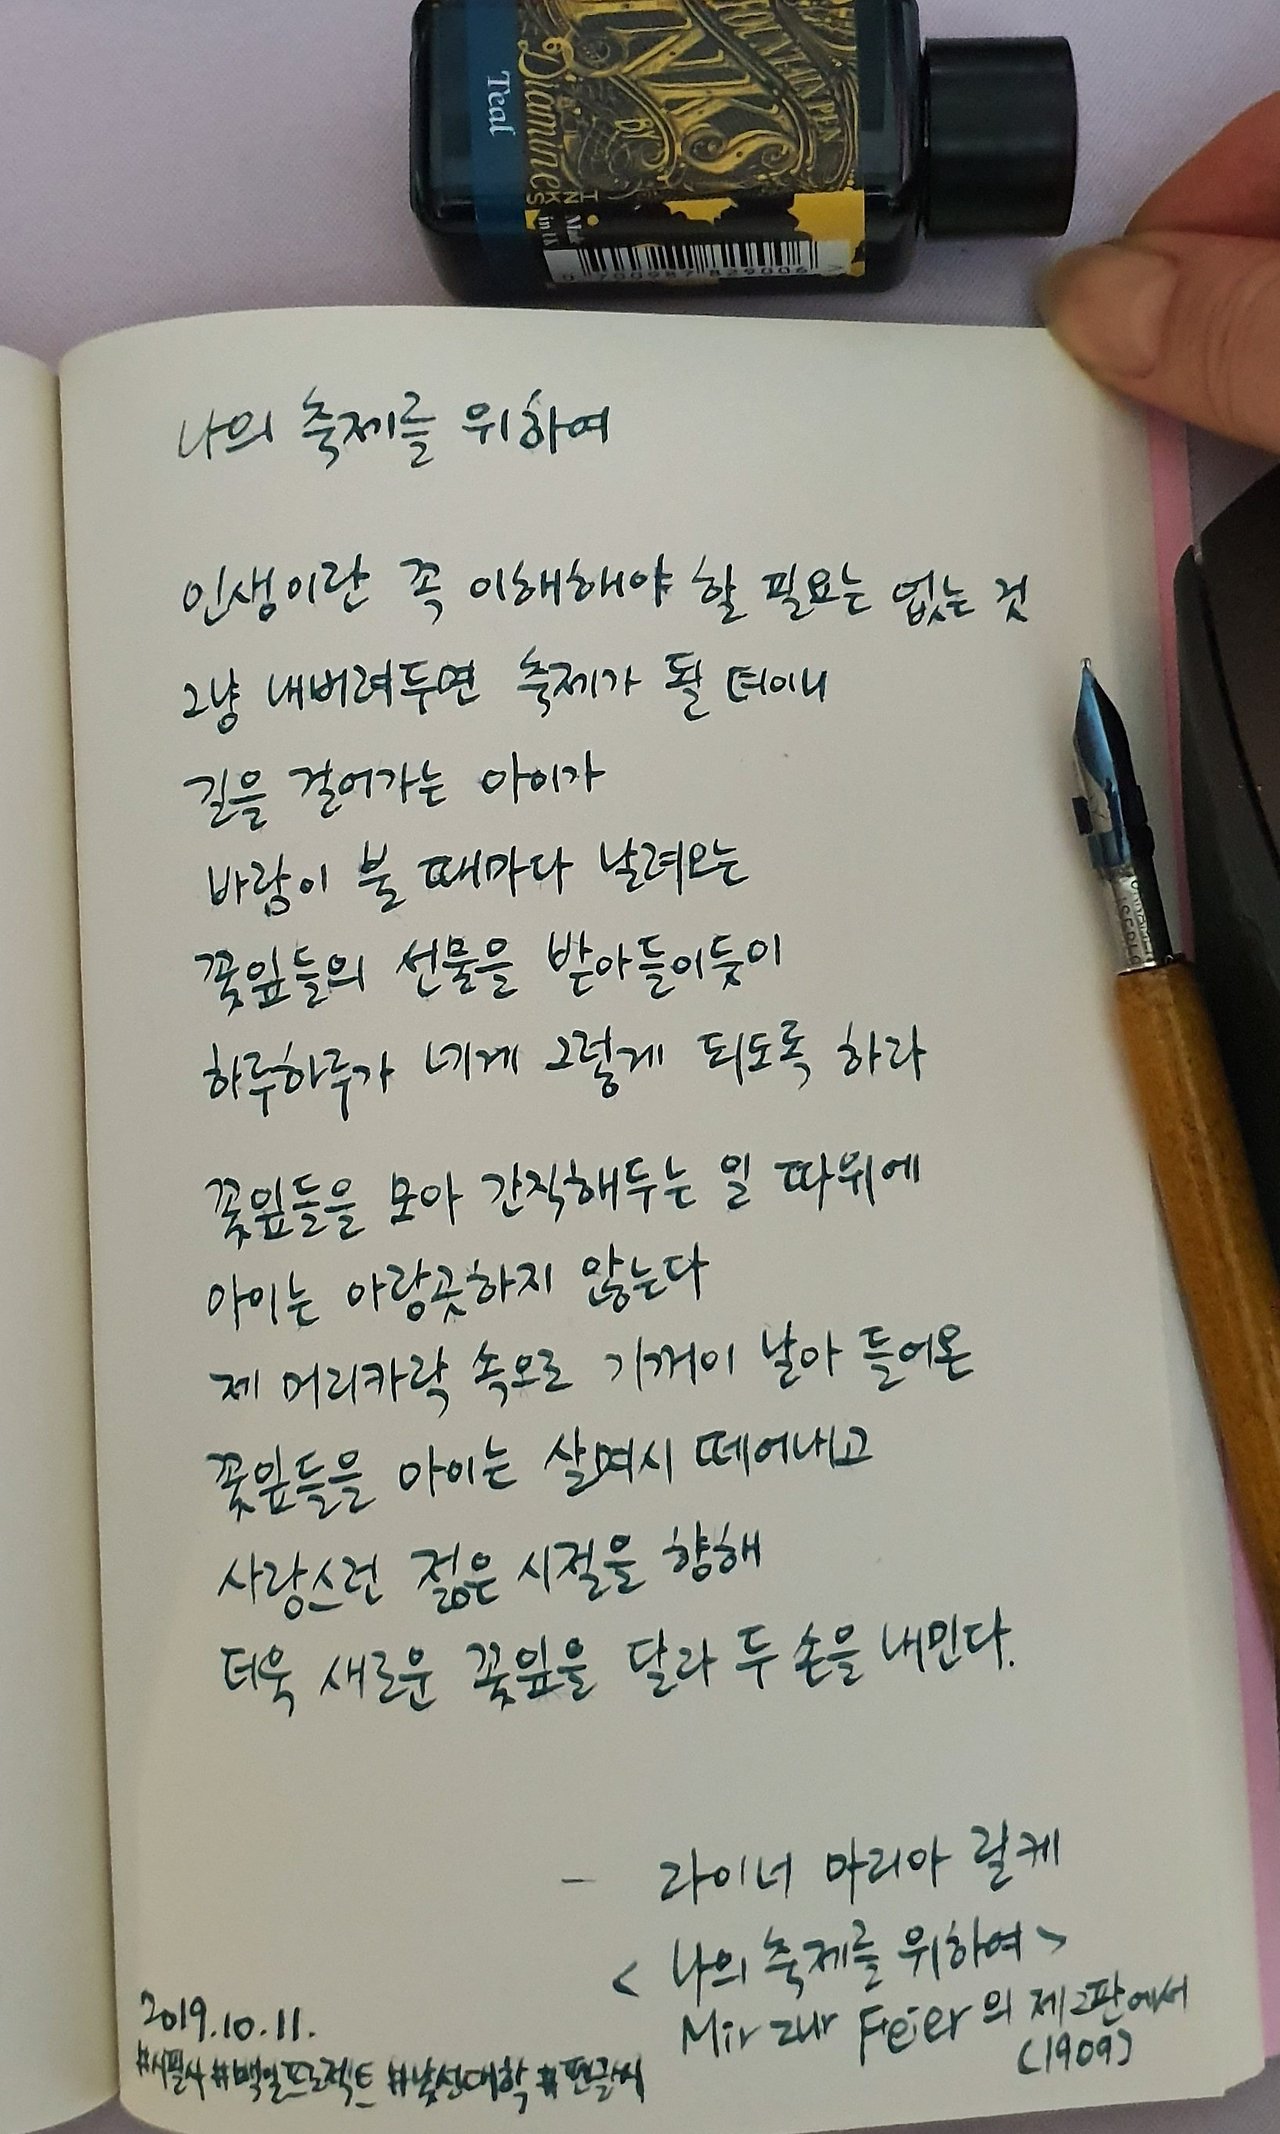 Teal
Diamine
INKS
FOUNTAIN PEN
BY
0 700987 829006 >
나의 축제를 위하여
인생이란 꼭 이해해야 할 필요는 없는 것
그냥 내버려두면 축제가 될 터이니
길을 걸어가는 아이가
바람이 불 때마다 날려오는
꽃잎들의 선물을 받아들이듯이
하루하루가 네게 그렇게 되도록 하라
꽃잎들을 모아 간직해두는 일 따위에
아이는 아랑곳하지 않는다
제 머리카락 속으로 기꺼이 날아 들어온
꽃잎들을 아이는 살며시 떼어내고
사랑스런 젊은 시절을 향해
더욱 새로운 꽃잎을 달라 두 손을 내민다.
- 라이너 마리아 릴케
< 나의 축제를 위하여 >
Mir zur Feier의 제2판에서
(1909)
2019.10.11.
#시필사 #백일프로젝트 #낯선대학 #펜글씨